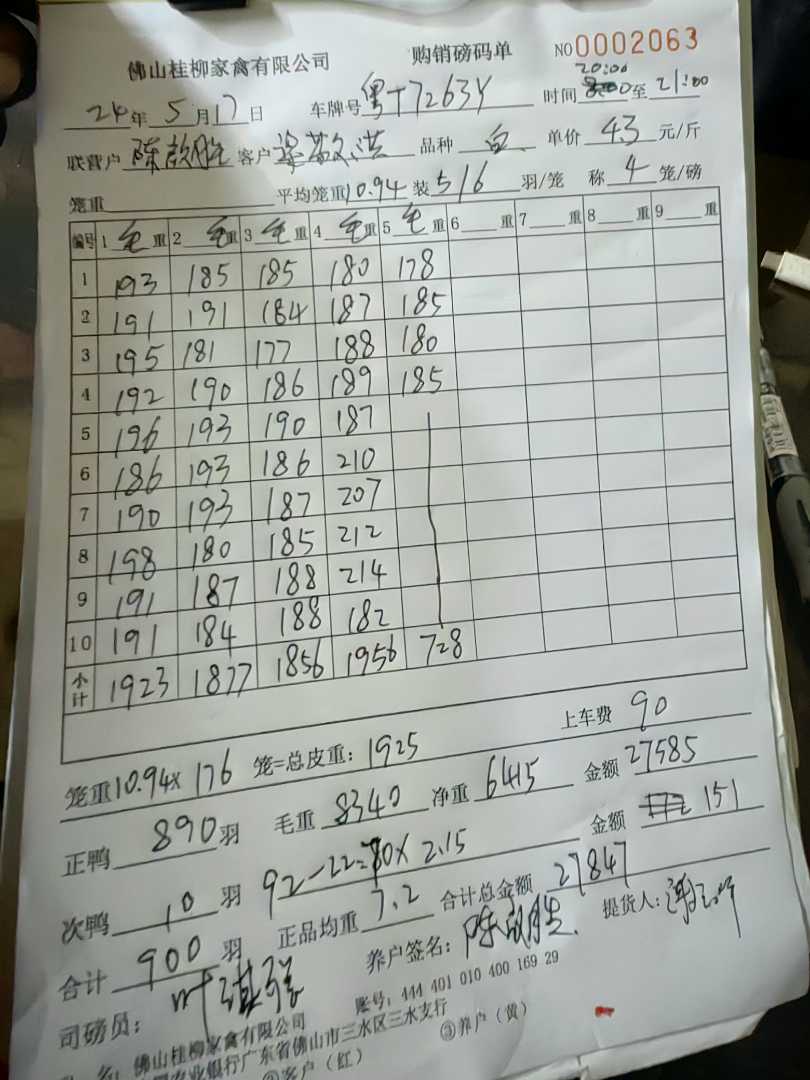 佛山桂柳家禽有限公司 购销磅码单 NO0002063
24年 5月17日 车牌号粤T7263Y 时间20:00至21:00
联营户 客户 品种 白 单价 4.3 元/斤
笼重 平均笼重10.94 装5/6羽/笼 称 4 笼/磅
编号 1 毛重 2 毛重 3 毛重 4 毛重 5 毛重 6 重 7 重 8 重 9 重
1 193 185 185 180 178
2 191 191 184 187 185
3 195 181 177 188 180
4 192 190 186 189 185
5 196 193 190 187
6 186 193 186 210
7 190 193 187 207
8 198 180 185 212
9 191 187 188 214
10 191 184 188 182
小计 1923 1877 1856 1956 728
上车费 90
笼重10.94x 176 笼=总皮重:1925
正鸭 890羽 毛重 8340 净重 6415 金额27585
次鸭 10 羽 92-22=70x2.15 金额 151
合计 900 羽 正品均重 7.2 合计总金额 27847
司磅员: 养户签名: 提货人:
账号:444 401 010 400 169 29
名:佛山桂柳家禽有限公司
农业银行广东省佛山市三水区三水支行
客户(红) ③养户(黄)